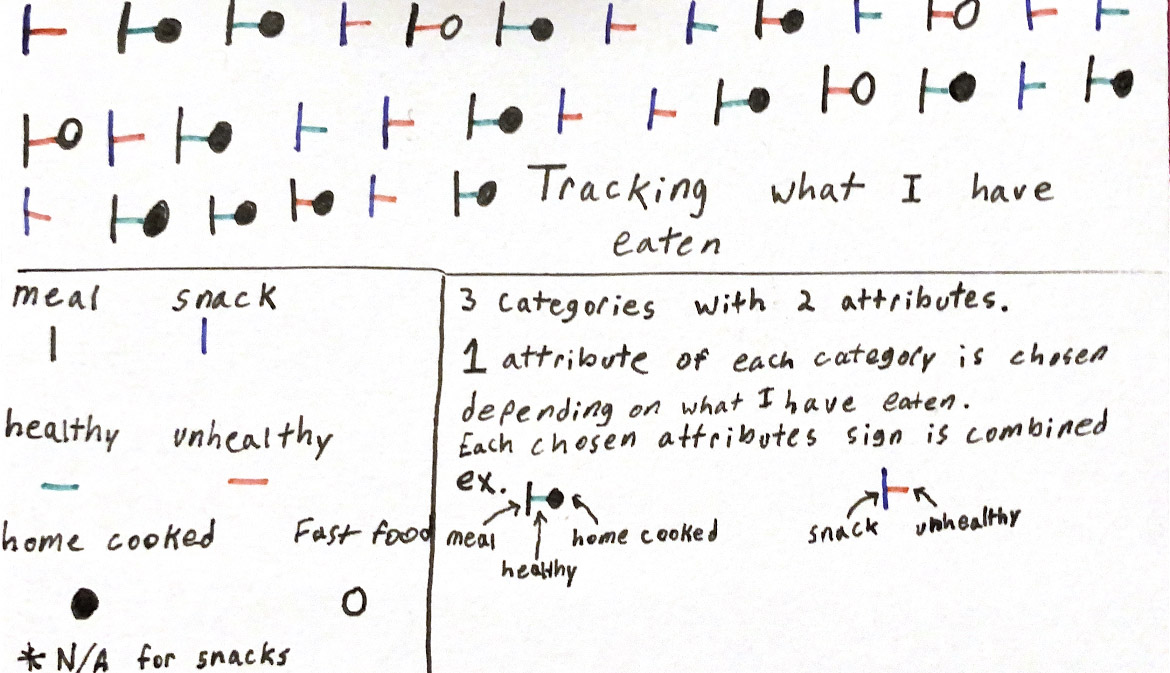 Tracking what I have
eaten
meal snack
healthy unhealthy
home cooked Fast food
* N/A for snacks
3 categories with 2 attributes.
1 attribute of each category is chosen
depending on what I have eaten.
Each chosen attributes sign is combined
ex.
meal healthy home cooked
snack unhealthy